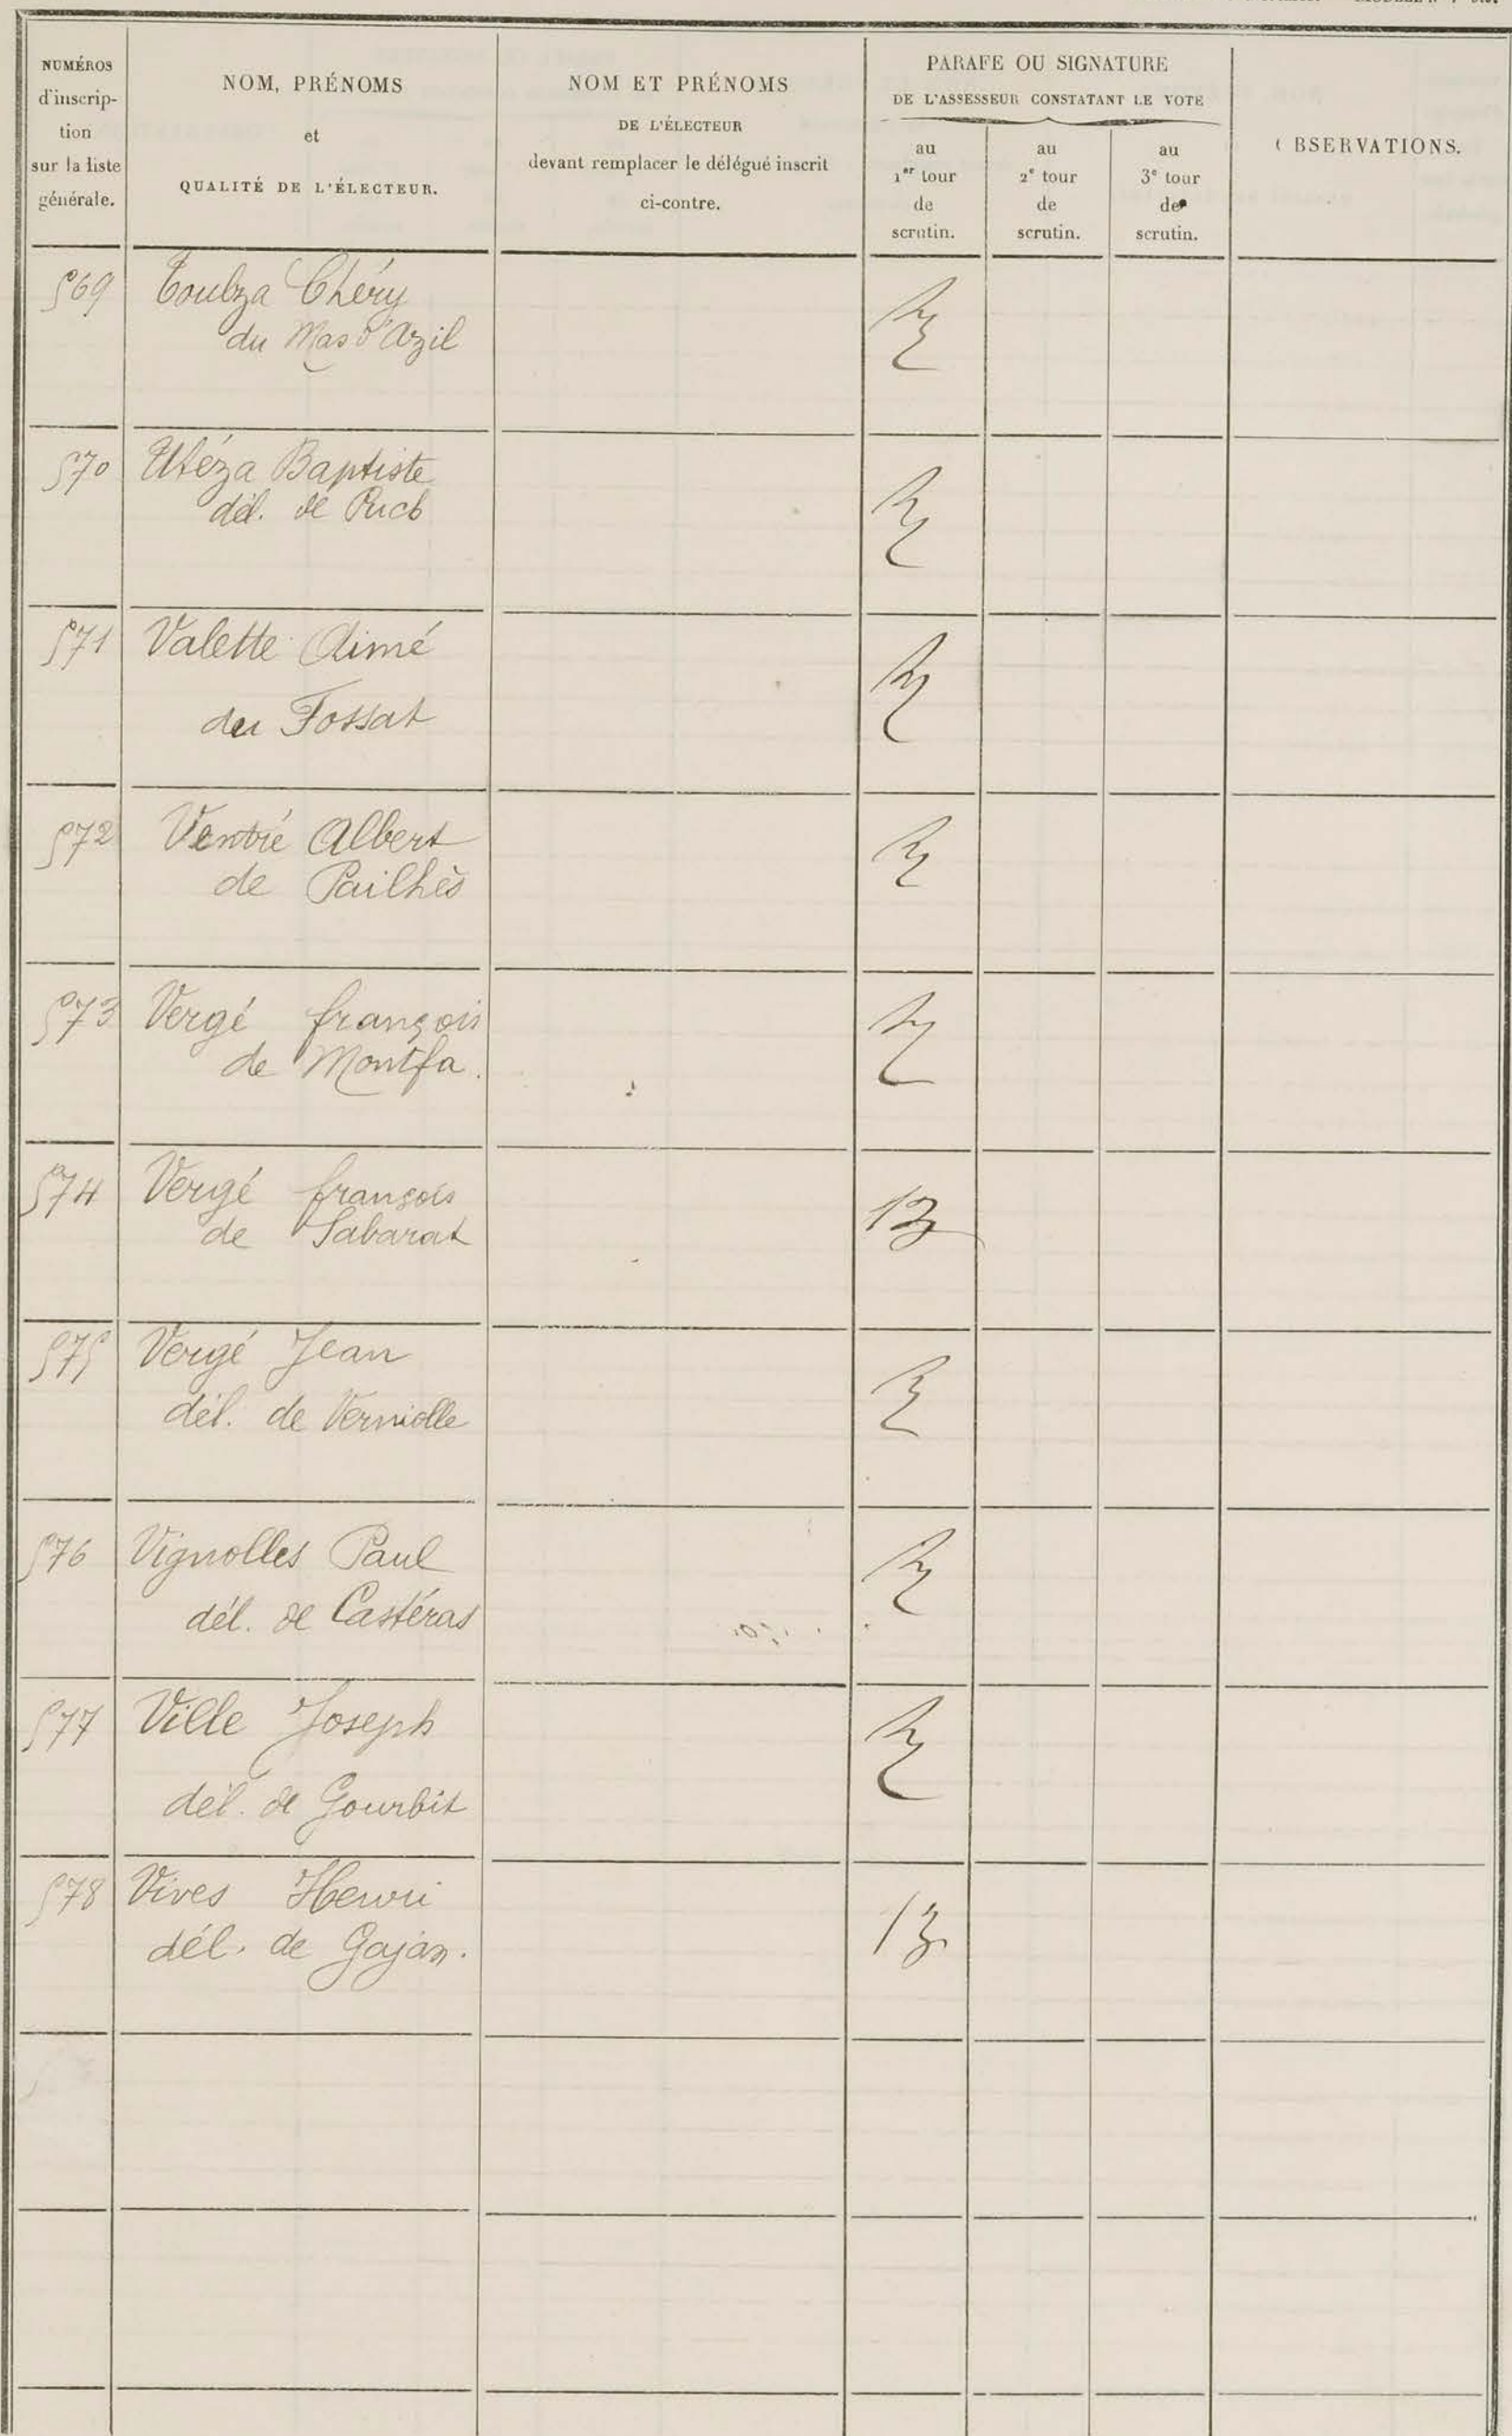 NUMÉROS
d'inscrip-
tion
sur la liste
générale.
NOM, PRÉNOMS
et
QUALITÉ DE L'ÉLECTEUR.
NOM ET PRÉNOMS
DE L'ÉLECTEUR
devant remplacer le délégué inscrit
ci-contre.
PARAFE OU SIGNATURE
DE L'ASSESSEUR CONSTATANT LE VOTE
au
1er tour
de
scrutin.
au
2e tour
de
scrutin.
au
3e tour
de
scrutin.
BSERVATIONS.
569 Toulza Chéry
du Mas d'Azil
570 Utéza Baptiste
dél. de Puch
571 Valette Aimé
du Fossat
572 Ventré Albert
de Pailhès
573 Vergé françois
de Montfa.
574 Vergé françois
de Sabarat
575 Vergé Jean
dél. de Verniolle
576 Vignolles Paul
dél. de Castéras
577 Ville Joseph
dél. de Gourbit
578 Vives Henri
dél. de Gajan.